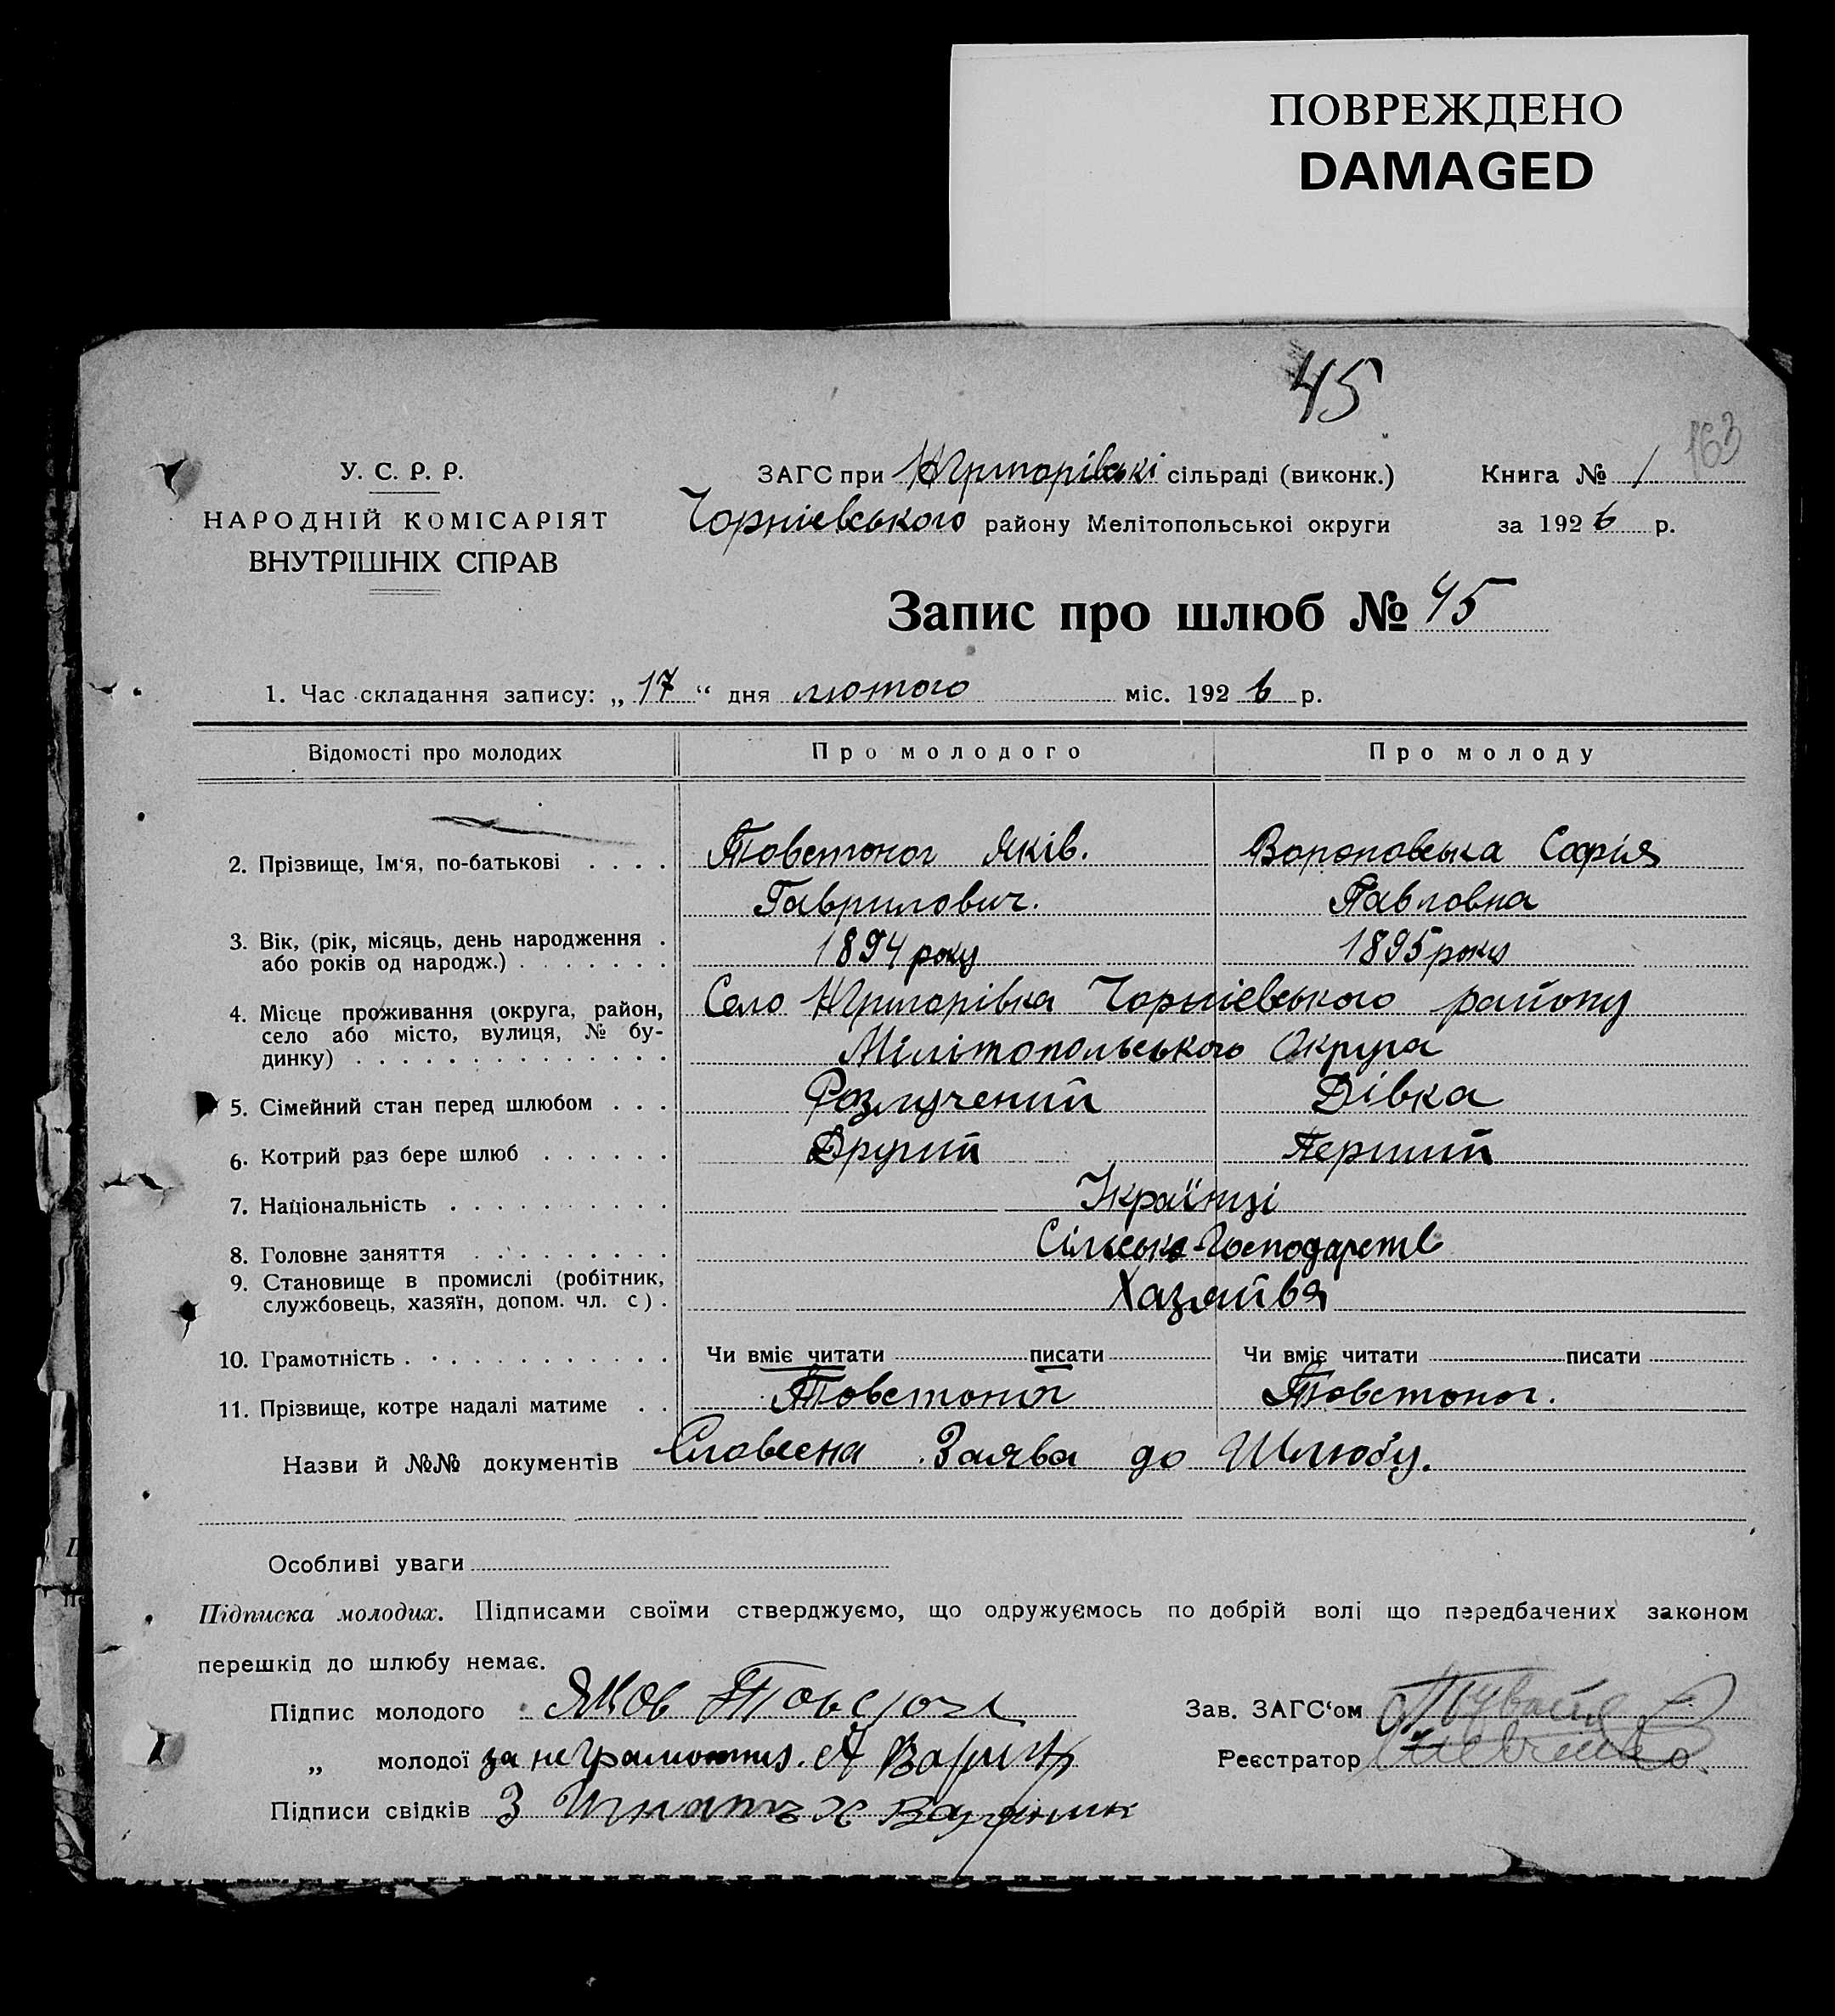 ПОВРЕЖДЕНО
DAMAGED
45
163
У. С. Р. Р.
НАРОДНІЙ КОМІСАРІЯТ
ВНУТРІШНІХ СПРАВ
ЗАГС при НГригорівські сільраді (виконк.)
Чорніевського району Мелітопольськоі округи
Книга № 1
за 1926 р.
Запис про шлюб № 45
1. Час складання запису: „ 17 “ дня лютого міс. 1926 р.
Відомості про молодих Про молодого Про молоду
2. Прізвище, Ім‘я, по-батькові . . . . Товстоног Яків. Вороновська Софія
Гаврилович. Павловна
3. Вік, (рік, місяць, день народження . 1894 року 1895 року
або років од народж.) . . . . . . .
4. Місце проживання (округа, район, Село НГригорівка Чорніевського району
село або місто, вулиця, № бу-
динку) . . . . . . . . . . . . . . Мілітопольського Округа
5. Сімейний стан перед шлюбом . . . Розлучений Дівка
6. Котрий раз бере шлюб . . . . . . Другий Перший
7. Національність . . . . . . . . . . Українці
8. Головне заняття . . . . . . . . . Сільсько-Господарств
9. Становище в промислі (робітник,
службовець, хазяїн, допом. чл. с) . Хазяйва
10. Грамотність . . . . . . . . . . . . Чи вміє читати писати Чи вміє читати писати
11. Прізвище, котре надалі матиме . . Товстоног Товстоног.
Назви й №№ документів Словесна Заява до Шлюбу.
Особливі уваги
Підписка молодих. Підписами своїми стверджуємо, що одружуємось по добрій волі що передбачених законом
перешкід до шлюбу немає.
Підпис молодого Яков
Зав. ЗАГС‘ом
„ молодої за неграмотну
Реєстратор
Підписи свідків